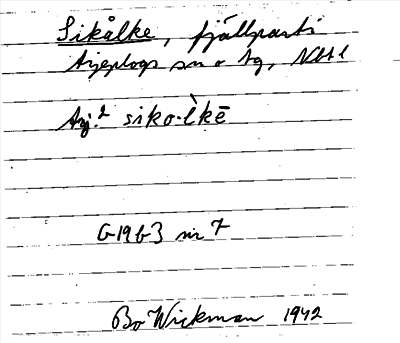 Sikålke, fjällparti
Arjeplogs sn o tg, Nbtl
Arj.² siko·l̀kē
G 1963 nr 7
Bo Wickman 1942